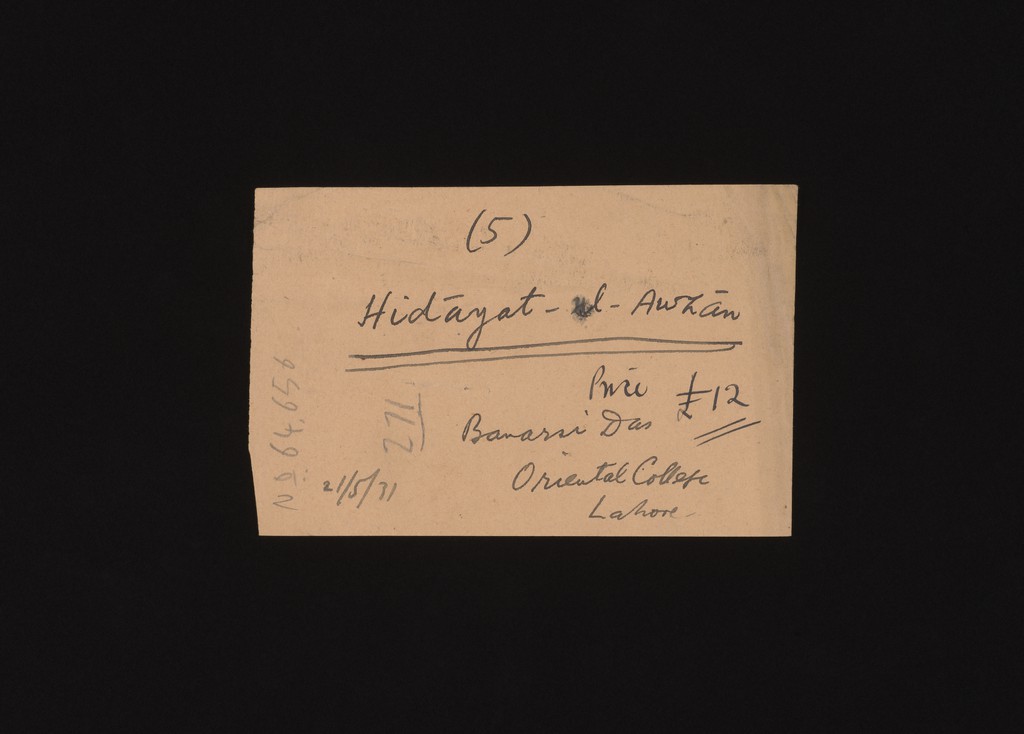 (5)
Hidāyat-ul-Awzān
Price £12
Banarsi Das
Oriental College
Lahore-
21/5/31
271
No 64,656